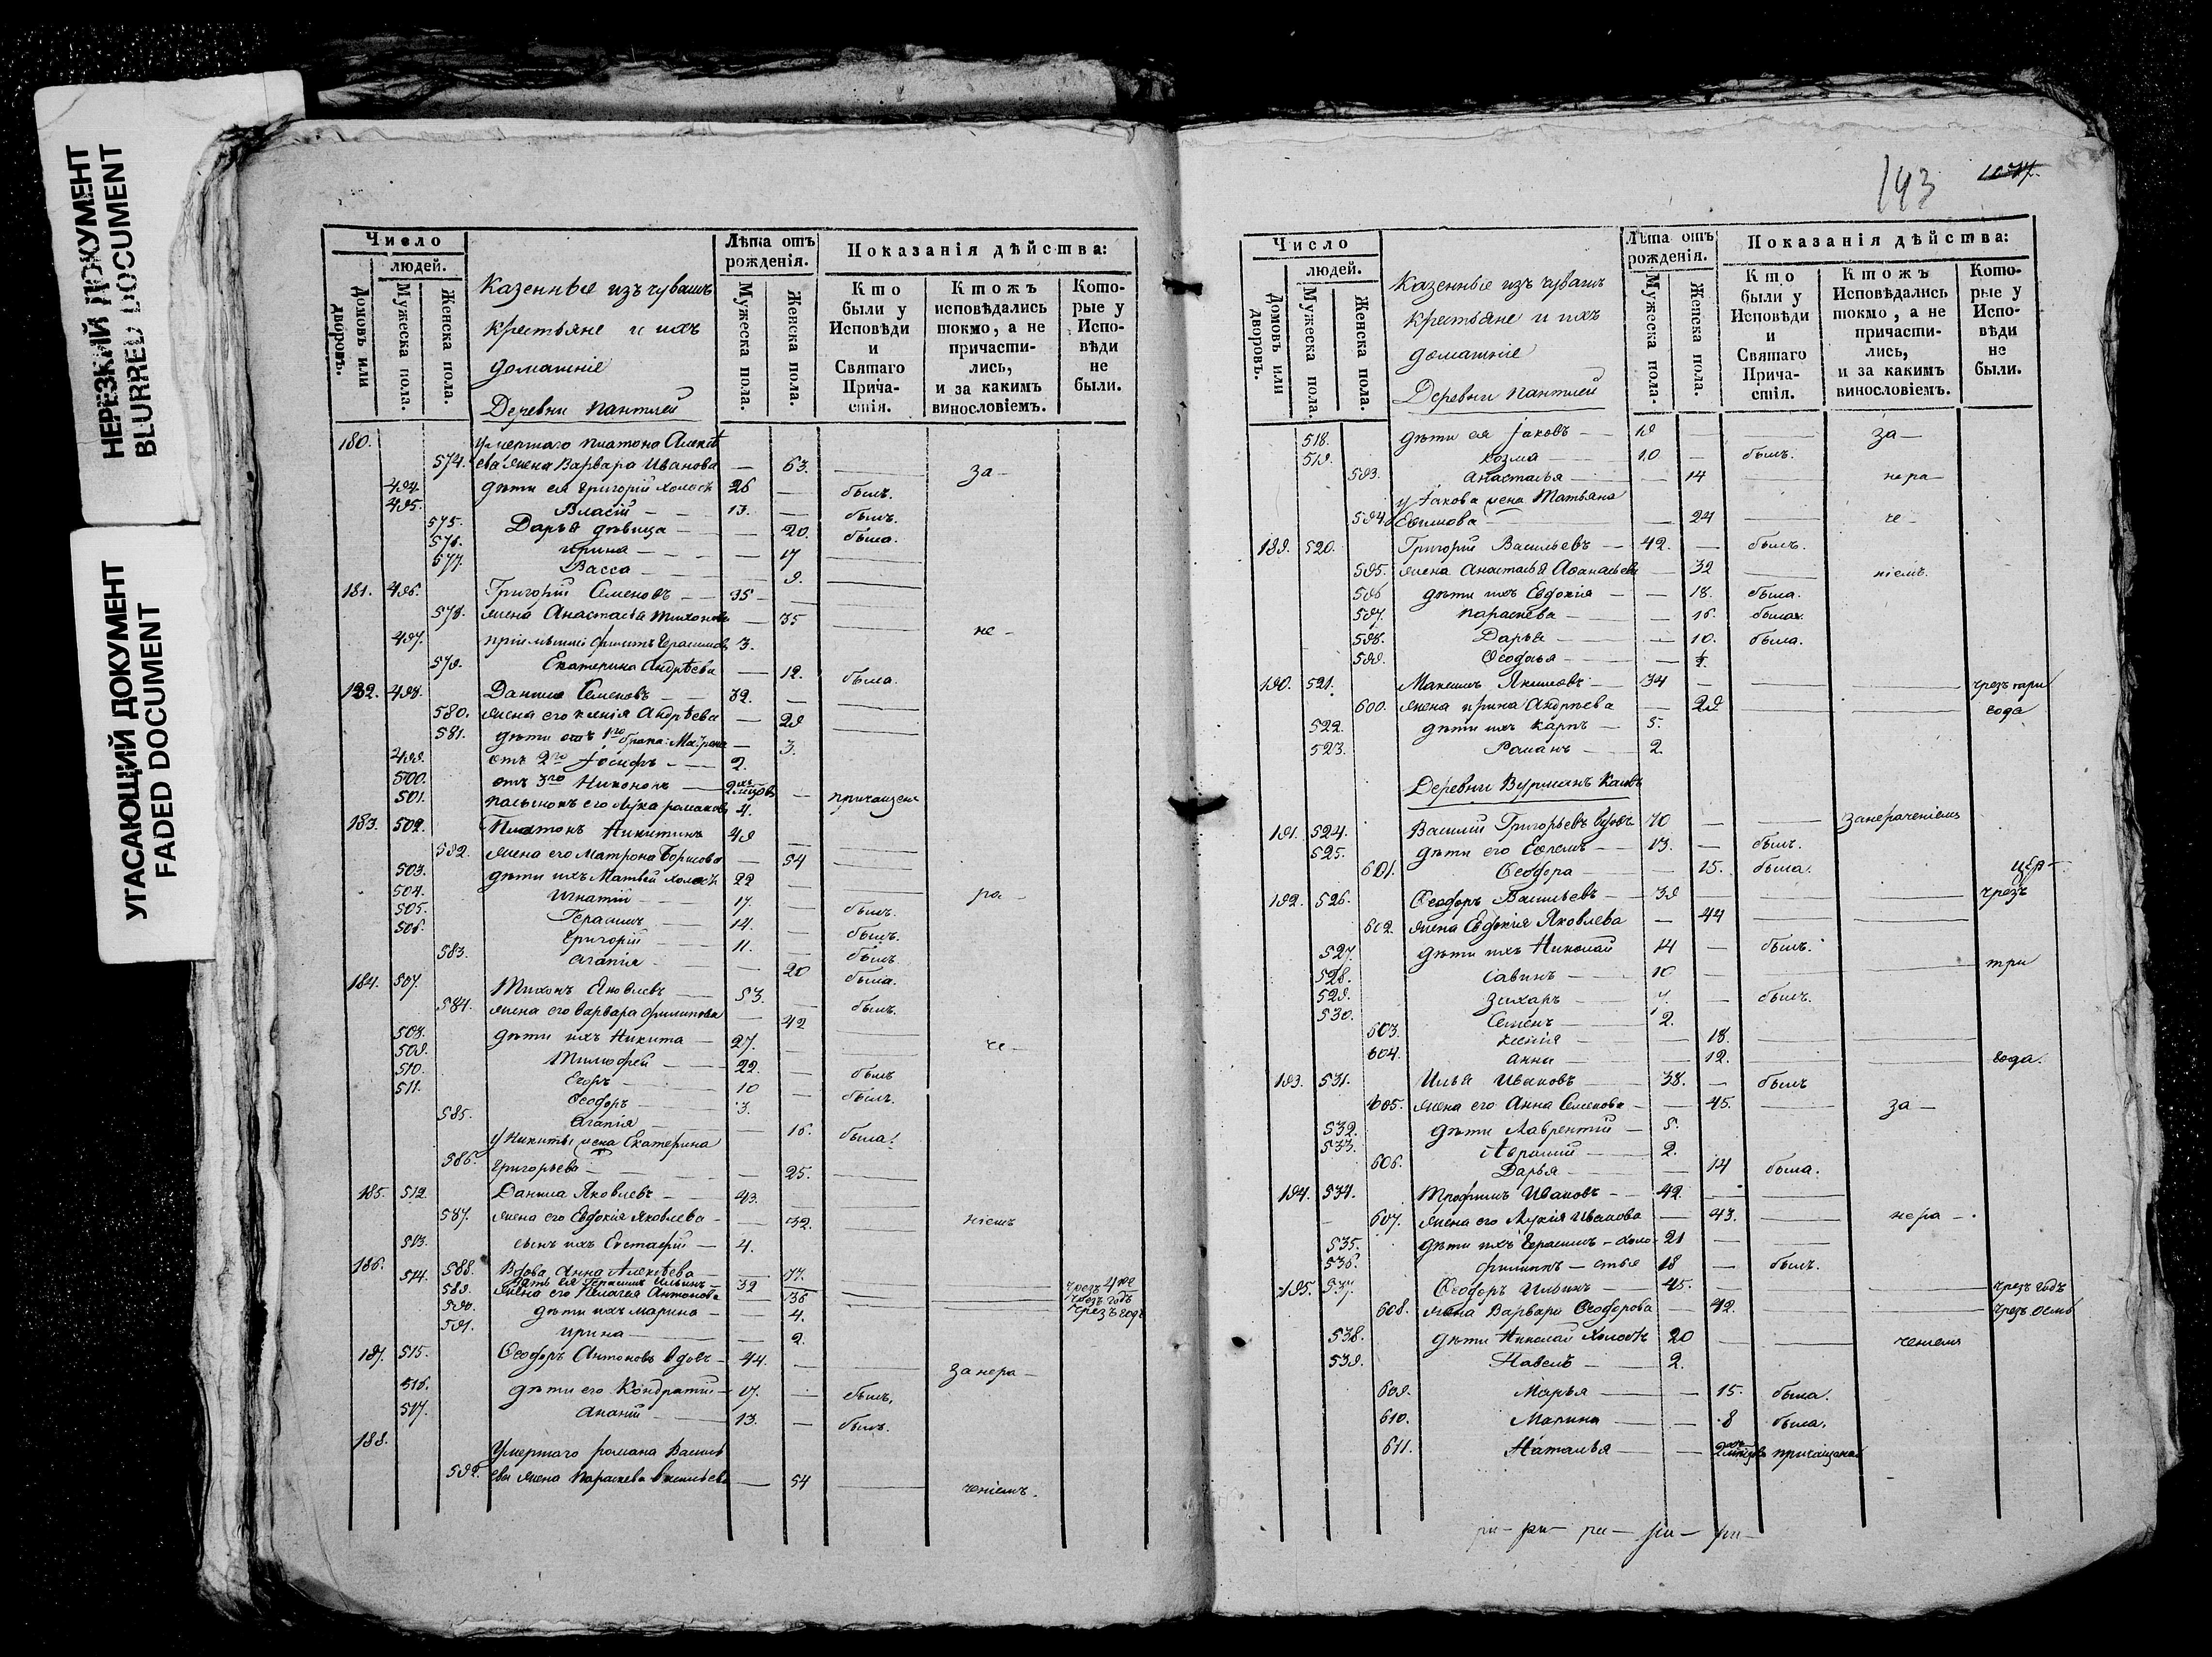 НЕРЕЗКИЙ ДОКУМЕНТ
BLURRED DOCUMENT
УГАСАЮЩИЙ ДОКУМЕНТ
FADED DOCUMENT
Число людей.
Домовъ или дворовъ.
Мужеска пола.
Женска пола.
Казенные изъ чувашъ
крестьяне и ихъ
домашніе
Деревни Пантлей
Лѣта отъ рожденія.
Мужеска пола.
Женска пола.
Показанія дѣйства:
Кто были у Исповѣди и Святаго Прича-стія.
Ктожъ исповѣдались токмо, а не причасти-лись, и за какимъ винословіемъ.
Кото-рые у Испо-вѣди не были.
180. Умершаго Платона Алексѣ
574. ева жена Варвара Иванова — 63. — за —
494. дѣти ея Григорій холостъ 26 — былъ.
495. Власій — 13. — былъ.
575. Дарья дѣвица — 20. была.
576. Ирина — 17 —
577. Васса — 9. —
181. 496. Григорій Семеновъ — 35 —
578. жена Анастасья Тихонова — 35 — не —
497. Герасимовъ 3.
579. Екатерина Андрѣева — 12. была.
182. 498. Данила Семеновъ — 32. —
580. жена его Ксенія Андрѣева — 29 —
581. дѣти отъ 1го брака: Матрена — 3.
499. отъ 2го Іосифъ — 2.
500. отъ 3го Никонъ —
501. пасынокъ его Лука 4.
183. 502. Платонъ Никитинъ 49 —
582. жена его Матрона Борисова — 54 —
503. дѣти ихъ Матвей холостъ 22 — ра —
504. Игнатій — 17. — былъ.
505. Герасимъ — 14. — былъ.
506. Григорій — 11. — былъ
583. Агапія — 20 была.
184. 507. Тихонъ Яковлевъ — 53. — былъ.
584. жена его Варвара Филипова — 42 —
508. дѣти ихъ Никита — 27. — че —
509. Тимофей — 22. — былъ
510. Егоръ — 10 — былъ.
511. Ѳеодоръ — 3.
585. Агапія — 16. была.
У Никиты жена Екатерина
586. Григорьева — 25. —
185. 512. Данила Яковлевъ — 43. —
587. жена его Евдокія Яковлева — 32. — ніемъ
513. сынъ ихъ Евстафій — 4.
186. 588. Вдова Анна Алексѣева — 77. —
514. Зять ея Герасимъ Ильинъ — 32 —
589. жена его Пелагея Антонова — 36 — чрезъ годъ
590. дѣти ихъ Марина — 4. чрезъ годъ
591. Ирина — 2.
187. 515. Ѳеодоръ Антоновъ вдовъ — 44. — за нера —
516. дѣти его Кондратій — 17. — былъ,
517. Ананій — 13. — былъ.
188. Умершаго Романа Василь
592. ева жена Параскева Васильева — 54 — ченіемъ.
143
Число людей.
Домовъ или дворовъ.
Мужеска пола.
Женска пола.
Казенные изъ чувашъ
крестьяне и ихъ
домашніе
Деревни Пантлей
Лѣта отъ рожденія.
Мужеска пола.
Женска пола.
Показанія дѣйства:
Кто были у Исповѣди и Святаго Прича-стія.
Ктожъ Исповѣдались токмо, а не причасти-лись, и за какимъ винословіемъ.
Кото-рые у Испо-вѣди не были.
518. дѣти ея Іаковъ — 19 — за —
519. Козма — 10 — былъ.
593. Анастасья — 14 — нера —
У Іакова жена Татьяна
594. Ефимова — 24 — че —
189. 520. Григорій Васильевъ — 42. — былъ.
595. жена Анастасья Аѳанасьева 32 — ніемъ.
596 дѣти ихъ Евдокія — 18. была.
597. Параскева — 16. была.
598. Дарья — 10. была.
599. Ѳеодосья —
190. 521. Максимъ Якимовъ — 34 — чрезъ три
600. жена Ирина Андрѣева — 29 — года
522. дѣти ихъ Карпъ — 5.
523. Романъ — 2.
Деревни Вурманъ
191. 524. Василій Григорьевъ вдовъ 70 — за нераченіемъ
525. дѣти его Ефремъ — 13. — былъ.
601. Ѳеодора — 15. была.
192. 526. Ѳеодоръ Васильевъ — 39 — чрезъ
602. жена Евдокія Яковлева — 44 —
527. дѣти ихъ Николай 14 — былъ.
528. Савинъ — 10 — три
529. Захаръ — 7. — былъ.
530. Семенъ — 2.
603. Ксенія — 18. —
604. Анна — 12. — года.
193. 531. Илья Ивановъ — 38. — былъ
605. жена его Анна Семенова — 45. — за —
532. дѣти Лаврентій — 5.
533. 2.
606. Дарья — 14 была.
194. 534. Трофимъ Ивановъ — 42. —
607. жена его Лукія Иванова — 43. — нера —
535. дѣти ихъ Герасимъ — холо- 21 —
536. Филиппъ — стые 18 — былъ.
195. 537. Ѳеодоръ Ильинъ — 45. — чрезъ годъ
608. жена Варвара Ѳеодорова — 42. — чрезъ осмь
538. дѣти Николай Холостъ 20 — ченіемъ
539. Павелъ — 2.
609. Марья — 15. была.
610. Марина — 8 была.
611. Наталья — причащена